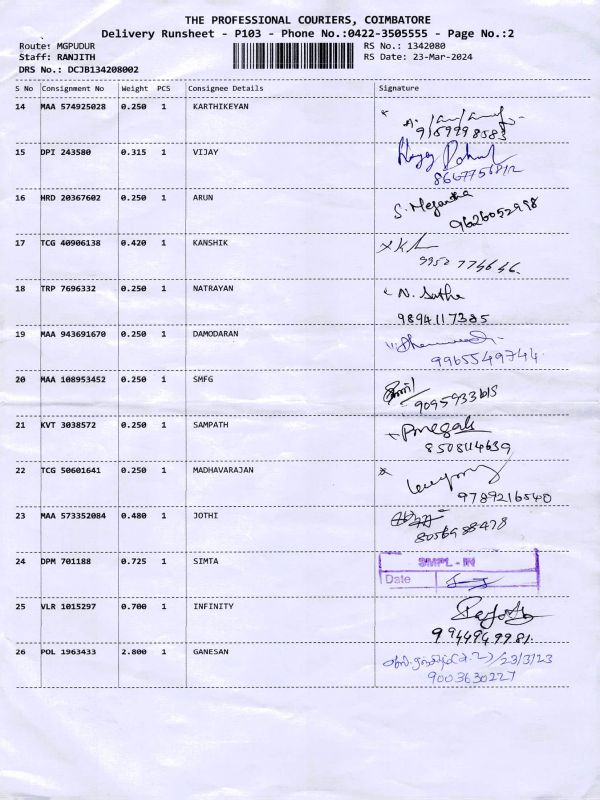 THE PROFESSIONAL COURIERS, COIMBATORE
Delivery Runsheet - P103 - Phone No.:0422-3505555 - Page No.:2
Route: MGPUDUR RS No.: 1342080
Staff: RANJITH RS Date: 23-Mar-2024
DRS No.: DCJB134208002
S No Consignment No Weight PCS Consignee Details Signature
14 MAA 574925028 0.250 1 KARTHIKEYAN
9159998583
15 DPI 243580 0.315 1 VIJAY
8667756812
16 HRD 20367602 0.250 1 ARUN
S. Megantha
9626052998
17 TCG 40906138 0.420 1 KANSHIK
9952 774646.
18 TRP 7696332 0.250 1 NATRAYAN
N. Sathe
9894117385
19 MAA 943691670 0.250 1 DAMODARAN
9965549744
20 MAA 108953452 0.250 1 SMFG
9095933615
21 KVT 3038572 0.250 1 SAMPATH
8508114639
22 TCG 50601641 0.250 1 MADHAVARAJAN
9789216540
23 MAA 573352084 0.480 1 JOTHI
8056988478
24 DPM 701188 0.725 1 SIMTA
SMPL - IN
Date
25 VLR 1015297 0.700 1 INFINITY
9944949981.
26 POL 1963433 2.800 1 GANESAN
/23/3/23
9003630227